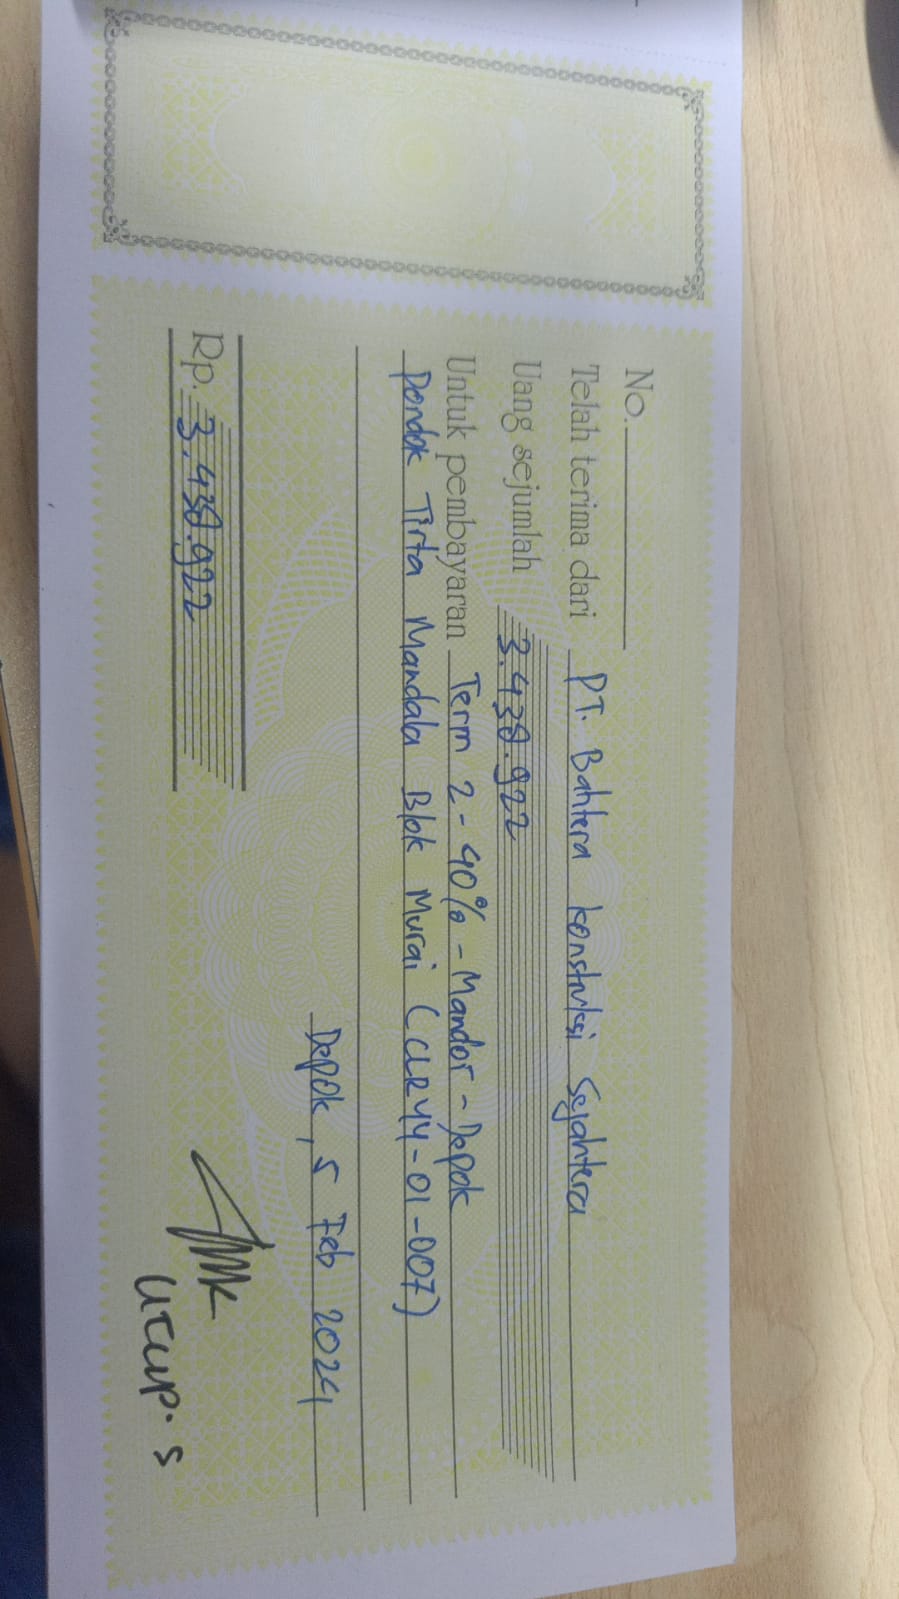 No.
Telah terima dari PT. Bahtera konstruksi Sejahtera
Uang sejumlah 3.430.922
Untuk pembayaran Term 2 - 40% - Mandor - Depok
Pondok Tirta Mandala Blok Murai (CLR44-01-007)
Depok, 5 Feb 2024
Rp. 3.430.922